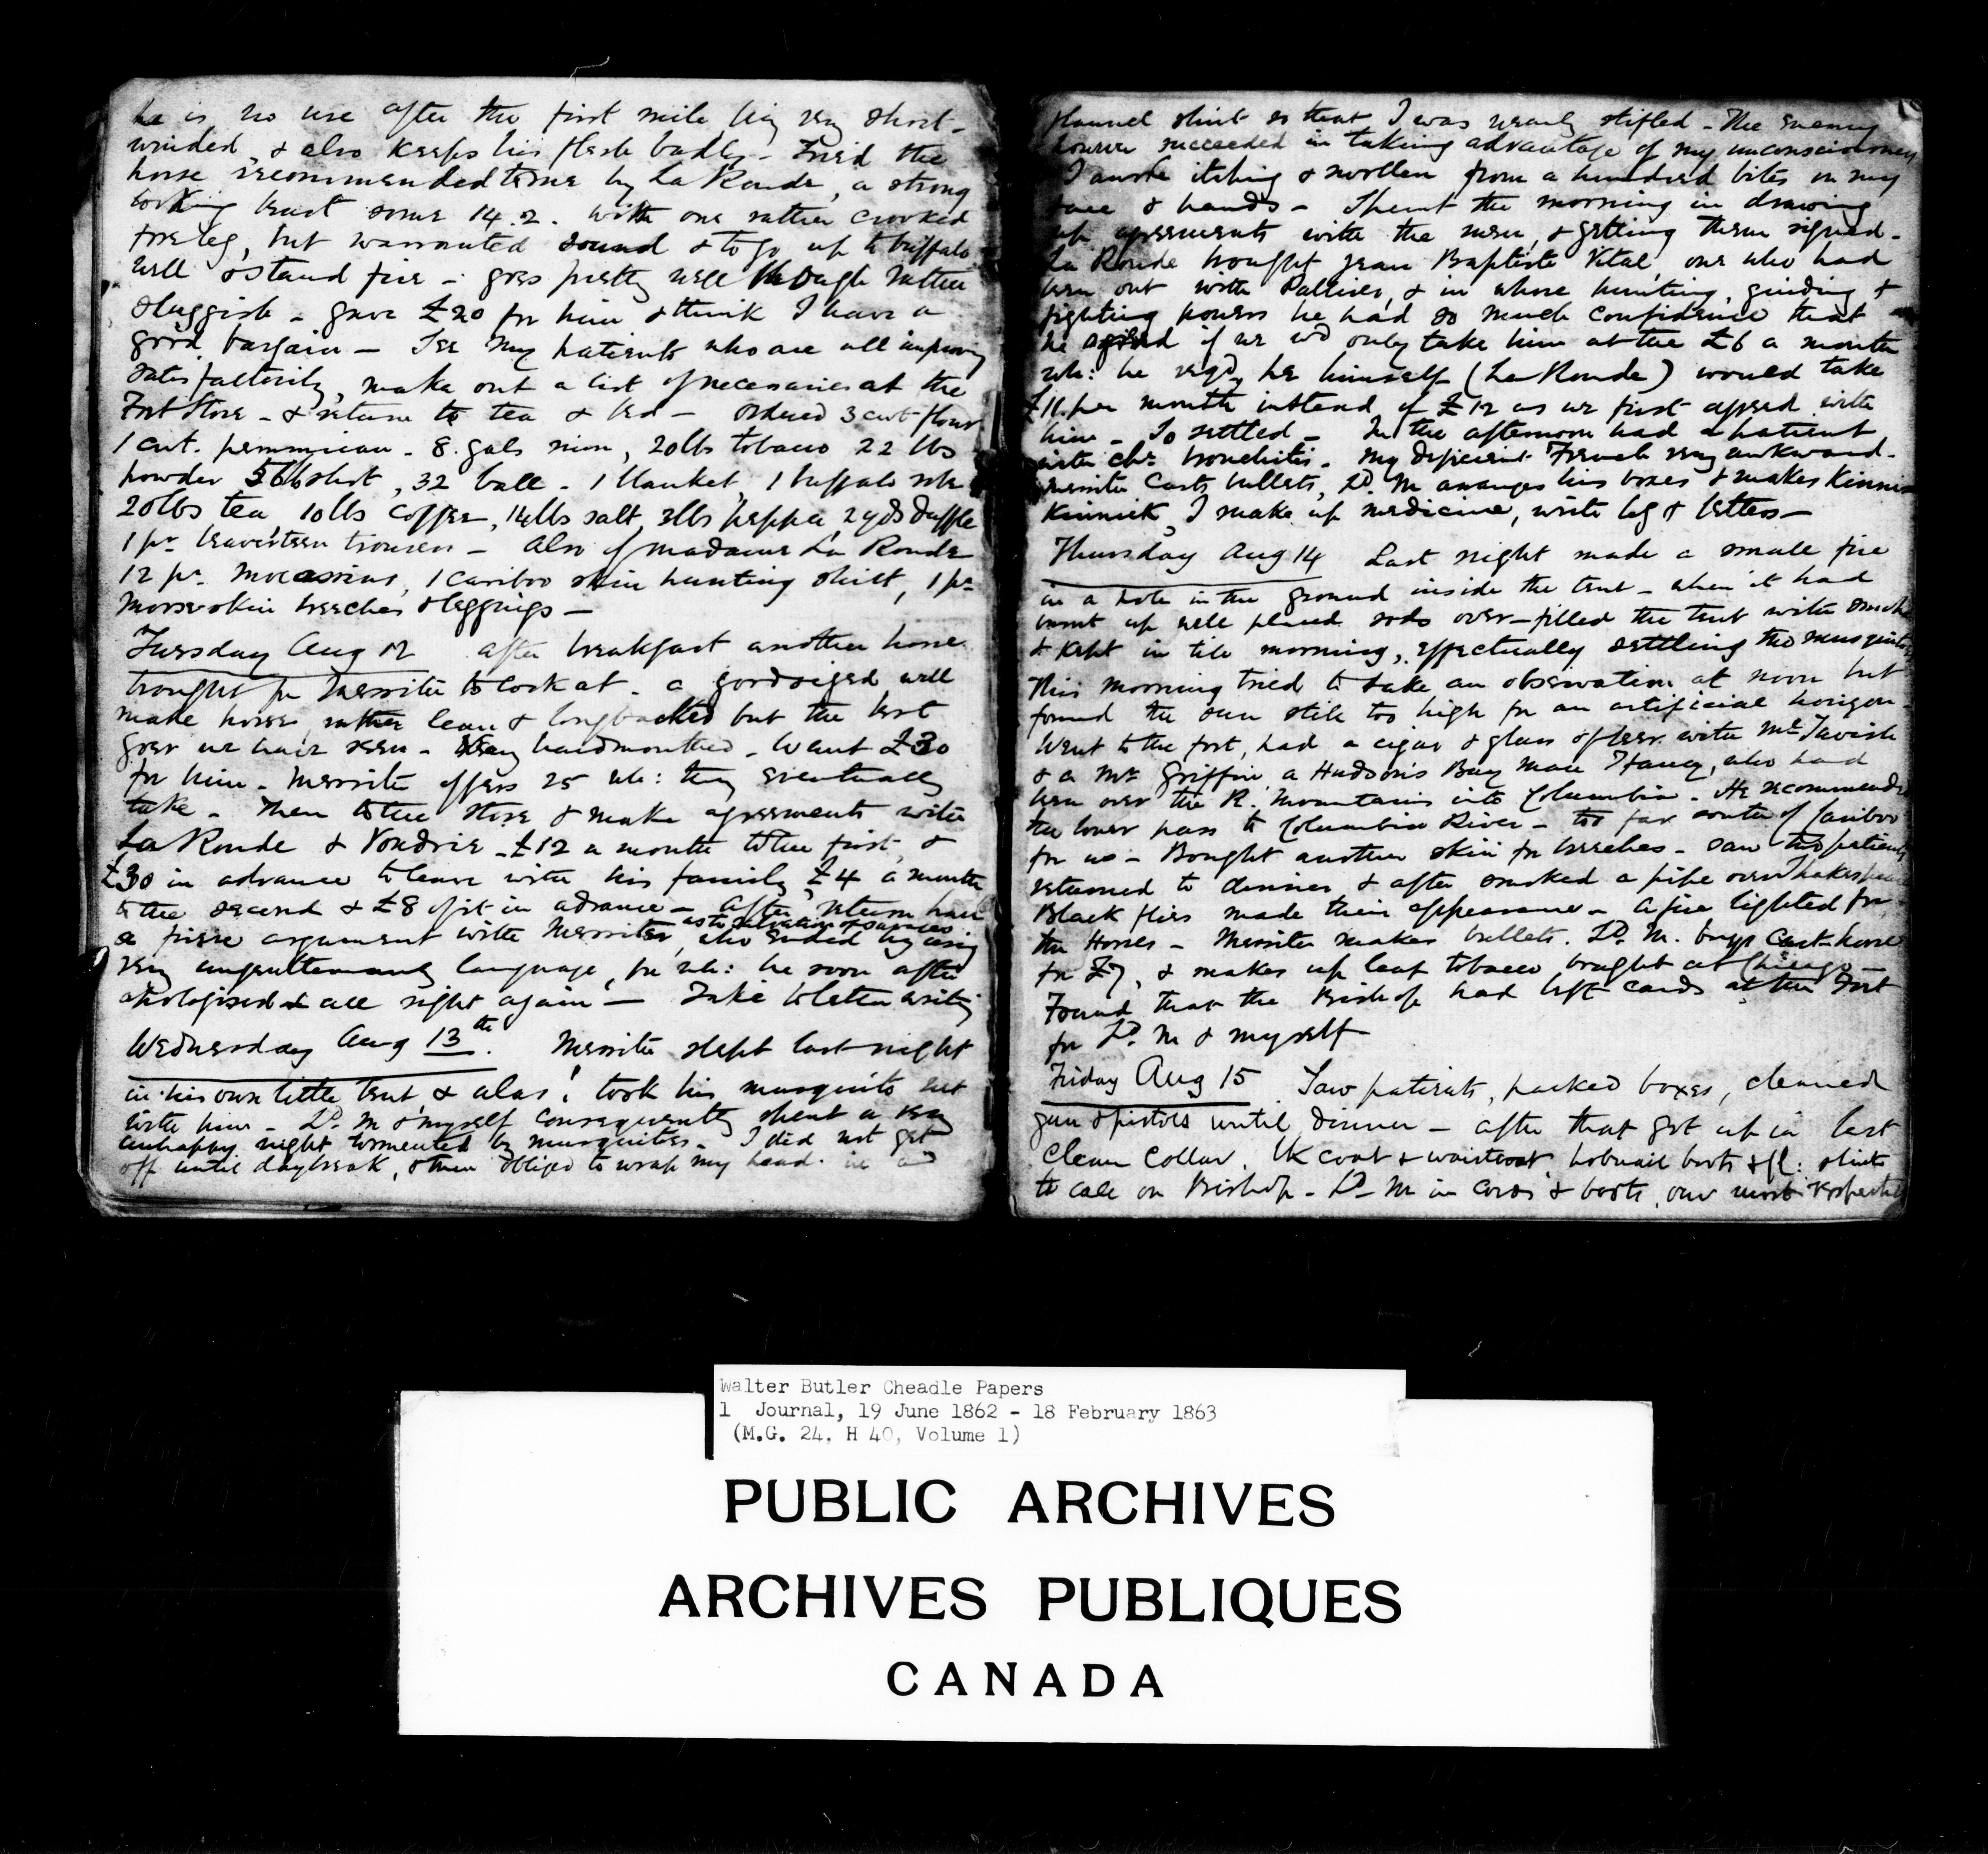 he is no use after the first mile being very short-
winded, & also keeps his flesh badly - Tried the
horse recommended to me by La Ronde, a strong
looking beast some 14.2. with one rather crooked
foreleg, but warranted sound & to go up to buffalo
well & stand fire - goes pretty well though rather
sluggish - gave £20 for him & think I have a
good bargain - See my patients who are all improving
satisfactorily, make out a list of necessaries at the
Fort Store - & return to tea & bed - ordered 3 cwt flour
1 cwt. pemmican - 8 gals rum, 20lbs tobacco 22 lbs
powder 56lb shot, 32 ball - 1 blanket, 1 buffalo robe
20lbs tea, 10lbs coffee, 14lbs salt, 3lbs pepper, 2 yds duffle
1 pr. trousers - Also of madame La Ronde
12 pr. mocassins, 1 cariboo skin hunting shirt, 1 pr
moose skin breeches & leggings -
Tuesday Aug 12 after breakfast another horse
brought for Messiter to look at - a good sized well
made horse, rather lean & longbacked but the best
goer we have seen - Very hardmouthed - Want £30
for him - Messiter offers 25 wh: they eventually
take - Then to the Store & make agreements with
La Ronde & Vondrie - £12 a month to the first, &
£30 in advance to leave with his family, £4 a month
to the second & £8 of it in advance - After return have
as to salvation of savages
a fierce argument with Messiter, who ended by using
very ungentlemanly language, for wh: he soon after
apologised & all right again - Take to letter writing
Wednesday Aug 13th. Messiter slept last night
in his own little tent & alas! took his musquito net
with him - Ld. M & myself consequently spent a very
unhappy night tormented by musquitoes - I did not get
off until daybreak, & then obliged to wrap my head in a
flannel shirt so that I was nearly stifled - The enemy
however succeeded in taking advantage of my unconsciousness
I awoke itching & swollen from a hundred bites on my
face & hands - Spent the morning in drawing
up agreements with the men, & getting them signed -
La Ronde brought Jean Baptiste Vital, one who had
been out with Palliser, & in whose hunting, guiding &
fighting powers he had so much confidence that
he agreed if we wd only take him at the £6 a month
wh: he reqd, he himself (La Ronde) would take
£11 per month instead of £12 as we first agreed with
him - So settled - In the afternoon had a patient
with chr. bronchitis - My deficient French very awkward -
Messiter casts bullets, Ld. M arranges his boxes & makes Kinni-
Kinnick, I make up medicine, write log & letters -
Thursday Aug 14 Last night made a small fire
in a hole in the ground inside the tent - when it had
burnt up well placed sods over - filled the tent with smoke
& kept in till morning, effectually settling the musquitoes
This morning tried to take an observation at noon but
found the sun still too high for an artificial horizon -
Went to the fort, had a cigar & glass of beer with McTavish
& a Mr Griffin, a Hudson's Bay man I fancy, who had
been over the R. Mountains into Columbia - He recommended
the lower pass to Columbia River - too far south of Cariboo
for us - Bought another skin for breeches - saw two patients
returned to dinner & after smoked a pipe over Shakespeare
Black flies made their appearance - A fire lighted for
the Horses - Messiter makes bullets. Ld. M. buys cart-horse
for £7, & makes up leaf tobacco bought at Chicago -
Found that the Bishop had left cards at the Fort
for Ld. M & myself -
Friday Aug 15 Saw patients, packed boxes, cleaned
gun & pistols until dinner - after that got up in best
clean collar, bk coat & waistcoat, hobnail boots & fl: shirts
to call on Bishop - Ld. M in cords & boots, our most respectable
Walter Butler Cheadle Papers
1 Journal, 19 June 1862 - 18 February 1863
(M.G. 24, H 40, Volume 1)
PUBLIC ARCHIVES
ARCHIVES PUBLIQUES
CANADA